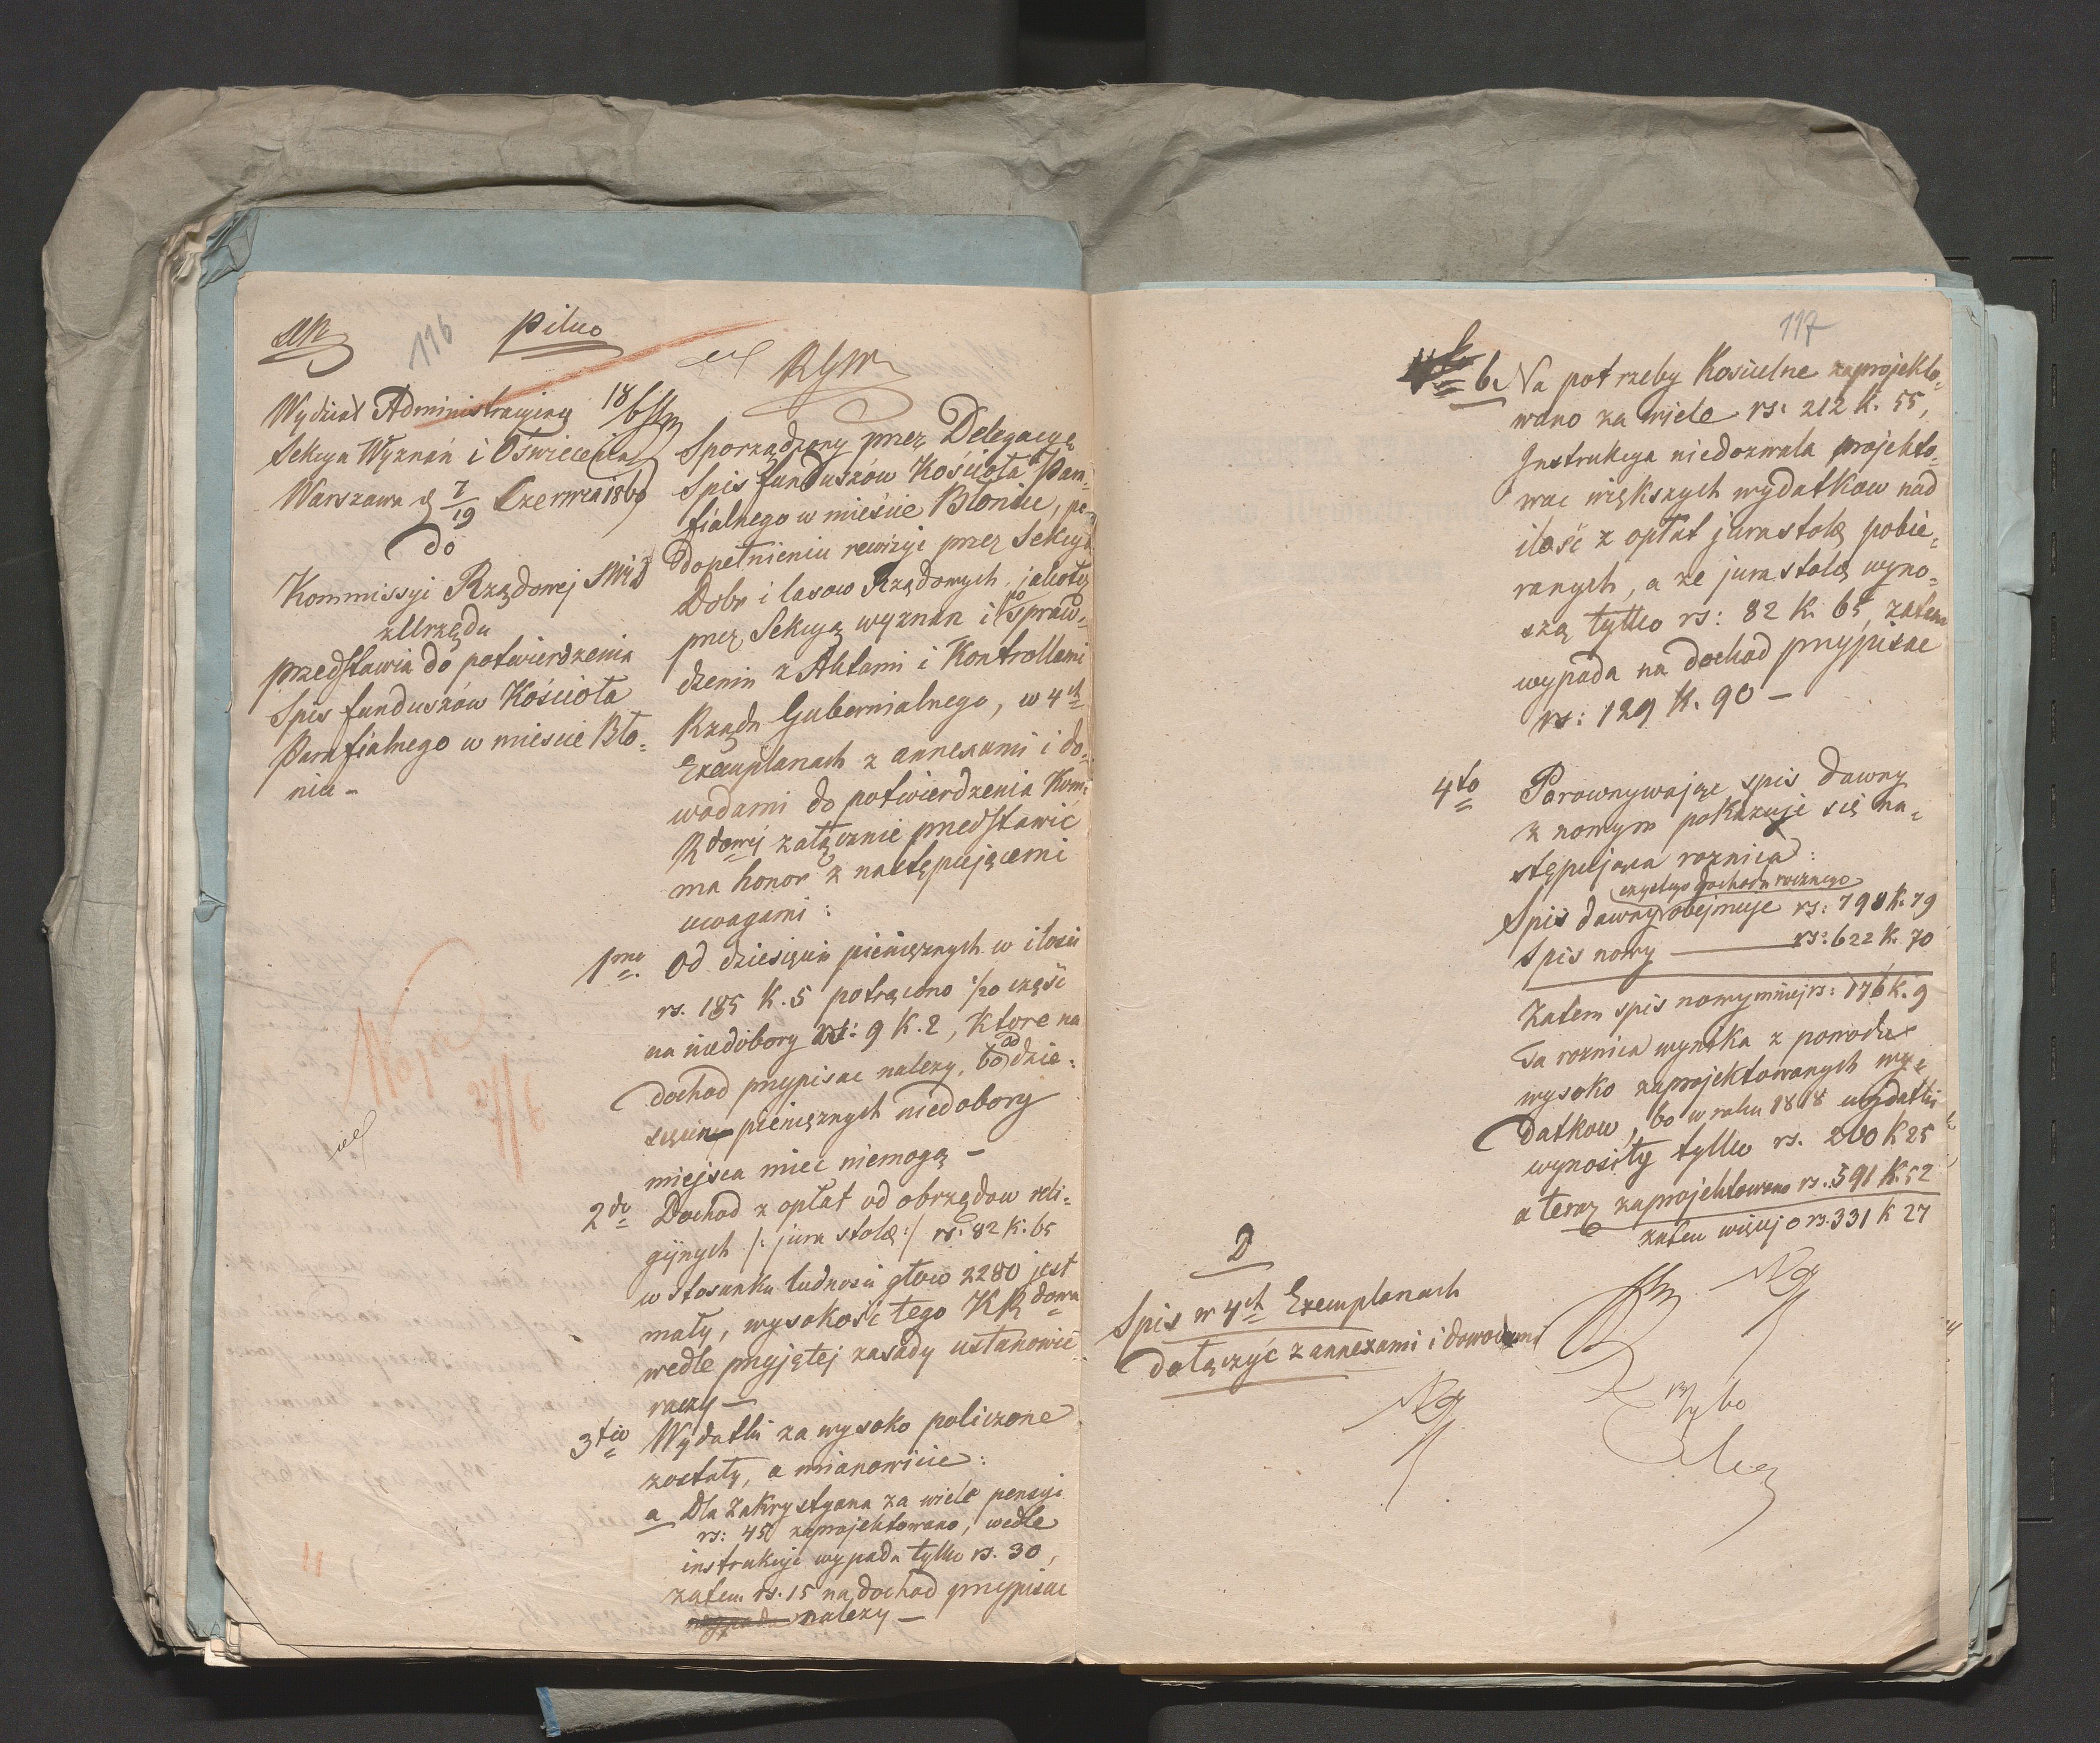 116
Pilno
Wydział Administracyjny
Sekcya Wyznań i Oświecenia
Warszawa d 7/19 Czerwca 1860
do
Kommissyi Rządowej SWiD
z Urzędu
przedstawia do potwierdzenia
Spis funduszów Kościoła
Parafialnego w mieście Bło=
niu -
RGW
Sporządzony przez Delegacyę
Spis funduszów Kościoła Para=
fialnego w mieście Błoniu, po
dopełnieniu rewizyi przez Sekcyą
Dobr i lasow Rządowych jakoteż
przez Sekcyą wyznan i po spraw=
dzeniu z Aktami i Kontrollami
Rządu Gubernialnego, w 4ch
Exemplarzach z annexami i do=
wodami do potwierdzenia Kom:
Rdowej załącznie przedstawić
ma honor z następującemi
uwagami:
1mo Od dziesięcin pieniężnych w ilości
rs. 185 k. 5 potrącono 1/20 część
na niedobory rs: 9 k. 2, Ktore na
dochod przypisac nalezy, bo od dzie=
sięcin pieniężnych niedobory
miejsca miec niemogą -
2do Dochod z opłat od obrzędow reli=
gijnych /: jura stolæ :/ rs: 82 k. 65
w stosunku ludnosci głow 2280 jest
mały, wysokość tego KRdowa
wedle przyjętej zasady ustanowić
raczy -
3tio Wydatki za wysoko policzone
zostały, a mianowicie:
a Dla Zakrystyana za wiele pensyi
rs: 45 zaprojektowano, wedle
instrukcyi wypada tylko rs. 30,
zatem rs. 15 na dochod przypisac
wypada nalezy -
117
b. Na potrzeby Kosielne zaprojekto=
wano za wiele rs: 212 k. 55,
Instrukcya niedozwala projekto=
wac większych wydatkow nad
ilość z opłat jura stolæ pobie=
ranych, a ze jura stolæ wyno=
szą tylko rs: 82 k. 65, zatem
wypada na dochod przypisac
rs: 129 k. 90 -
4to Porownywając spis dawny
z nowym pokazuje się na=
stępująca roznica:
czystego dochodu rocznego
Spis dawny obejmuje rs: 798 k. 79
Spis nowy rs: 622 k. 70
Zatem spis nowy mniej rs: 176 k. 9
Ta roznica wynika z powodu
wysoko zaprojektowanych wy=
datkow, bo w roku 1818 wydatki
wynosiły tylko rs. 260 k 25
a teraz zaprojektowano rs. 591 k. 52
zatem więcej o rs. 331 k 27
D
Spis w 4ch Exemplarzach
dołączyć z annexami i dowodami